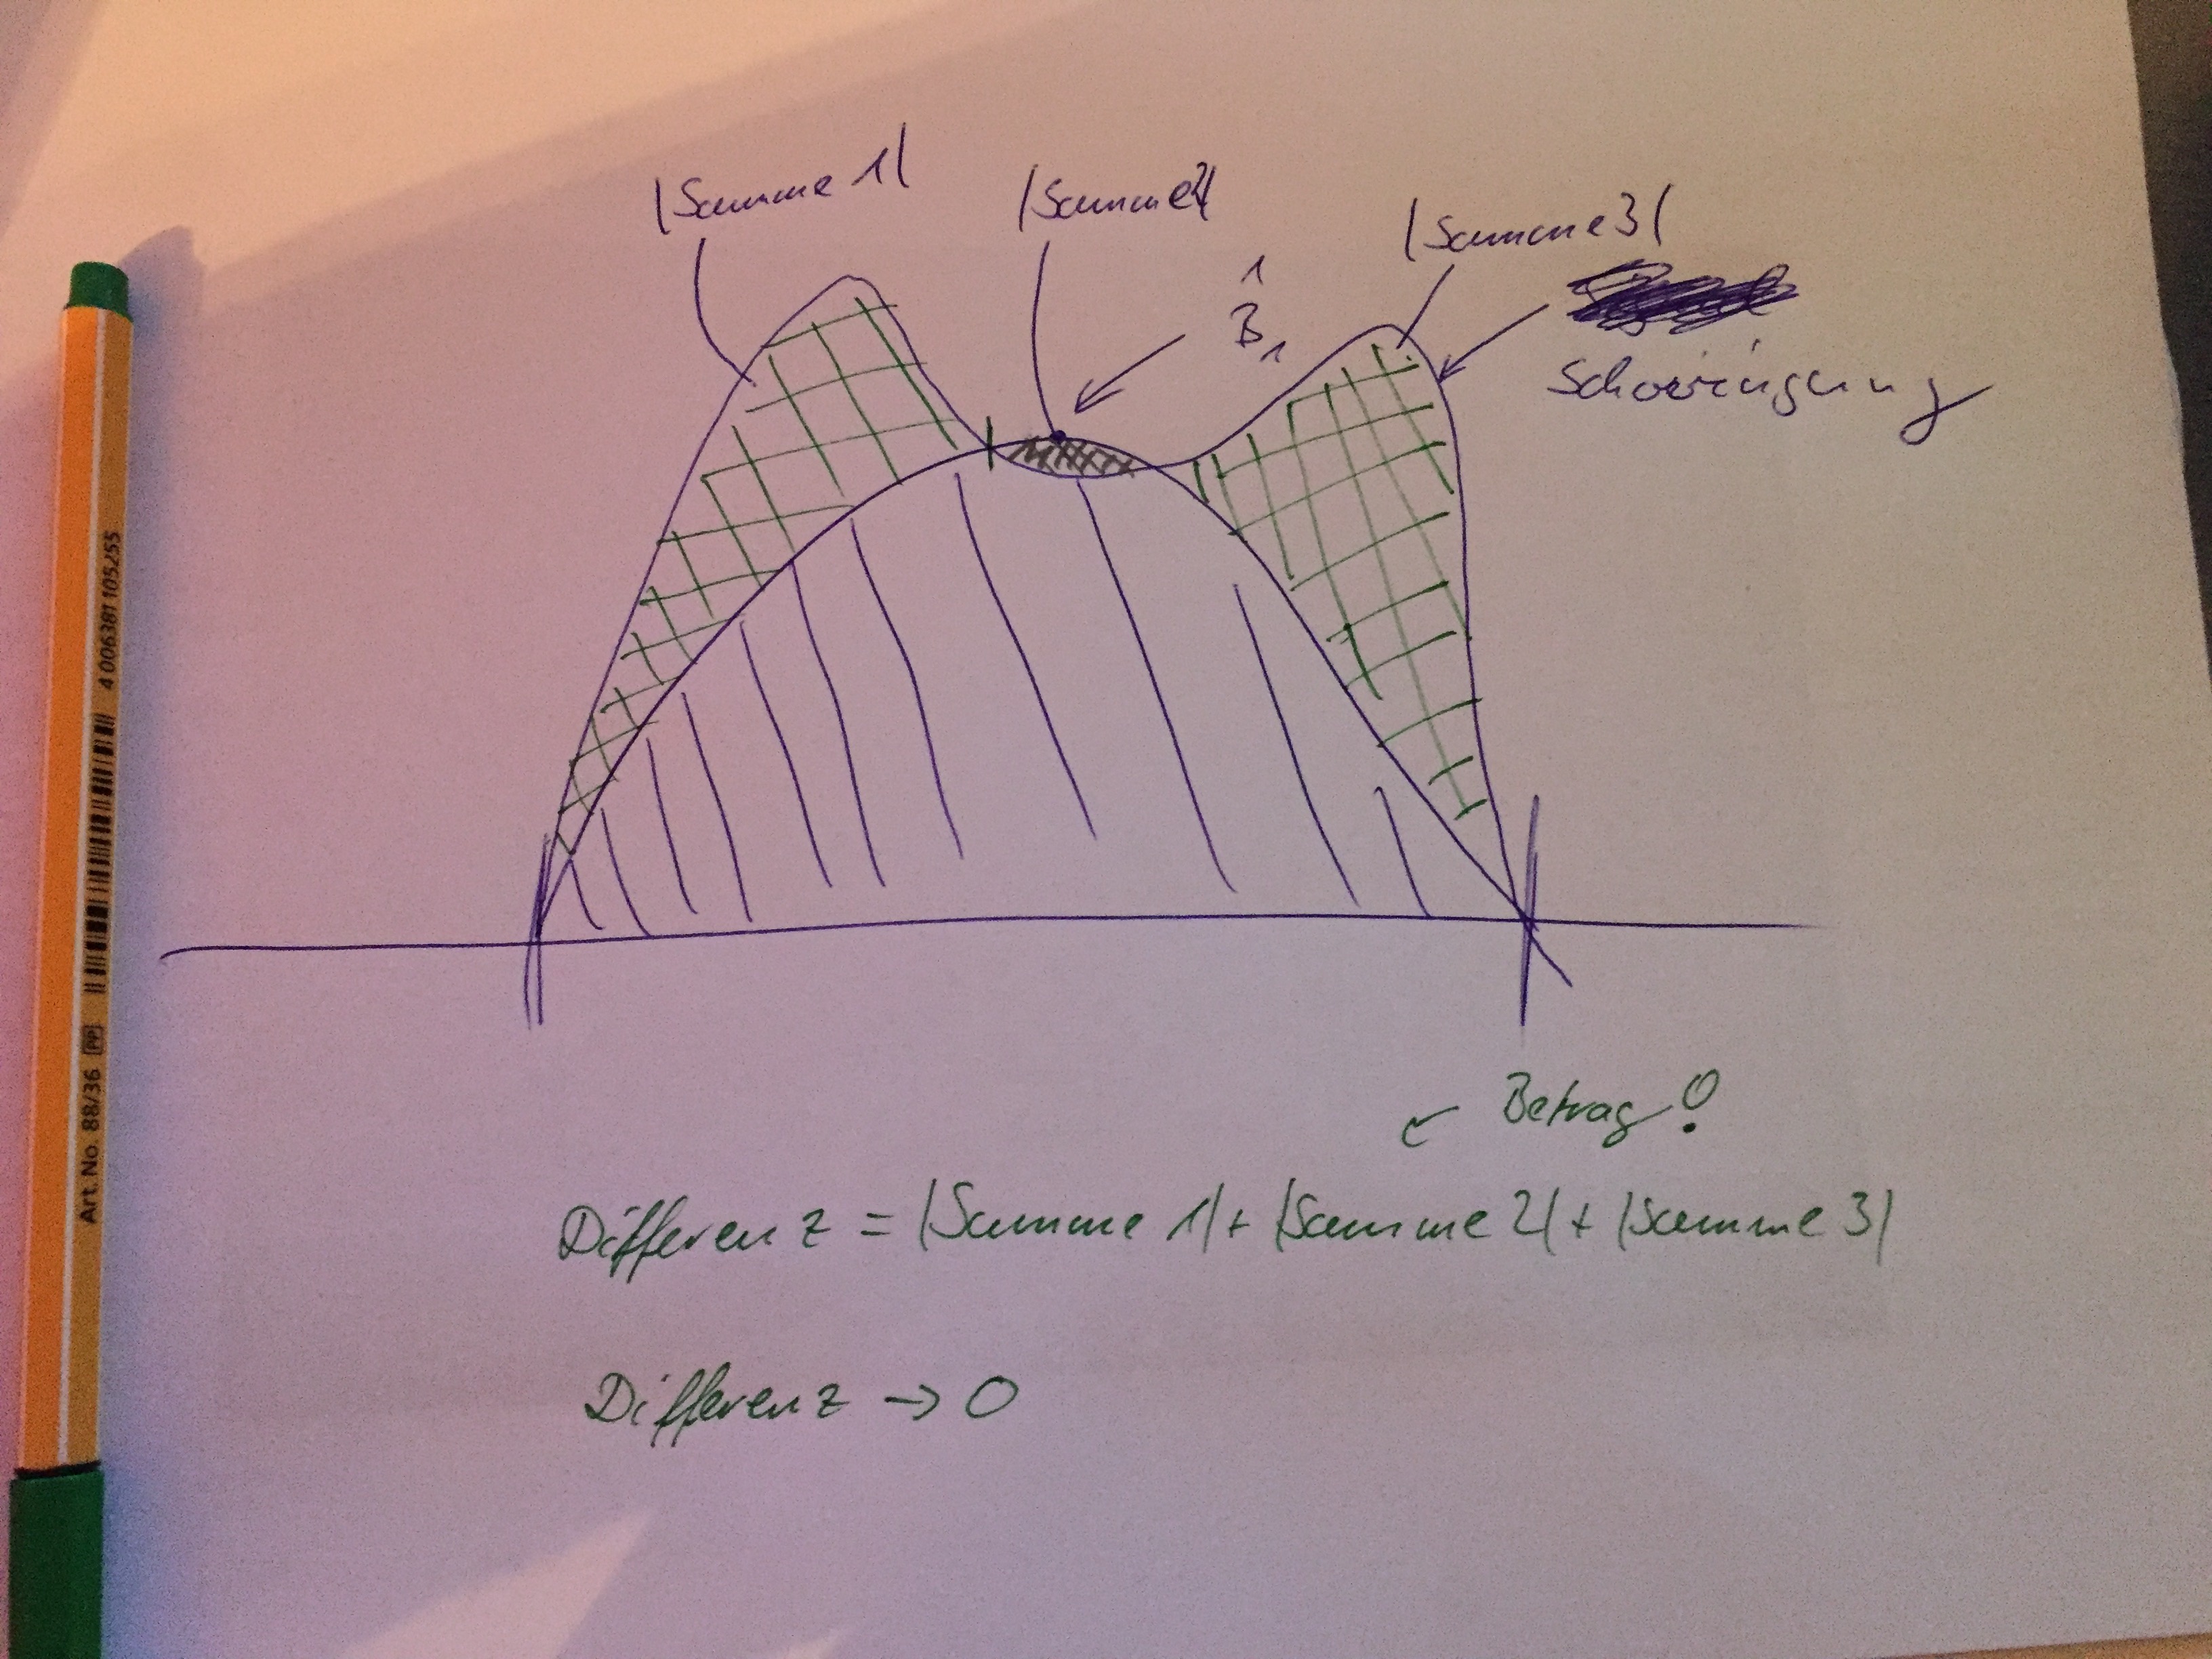 |Summe 1|
|Summe2|
|Summe3|
B̂₁
Schwingung
Betrag!
Differenz = |Summe 1| + |Summe 2| + |Summe 3|
Differenz → 0
Art. No. 88/36 PP 4 006381 105255